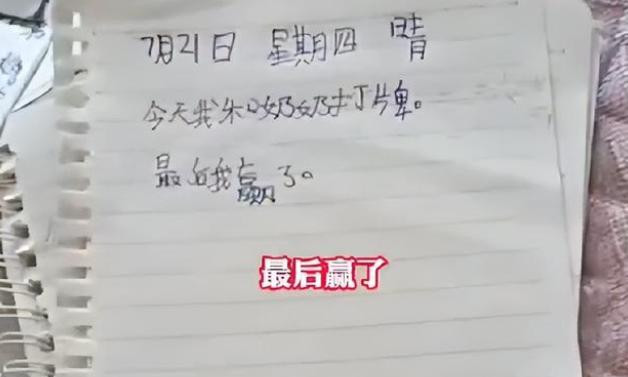 7月21日 星期四 晴
今天我和奶奶打牌。
最后我赢了。
最后赢了